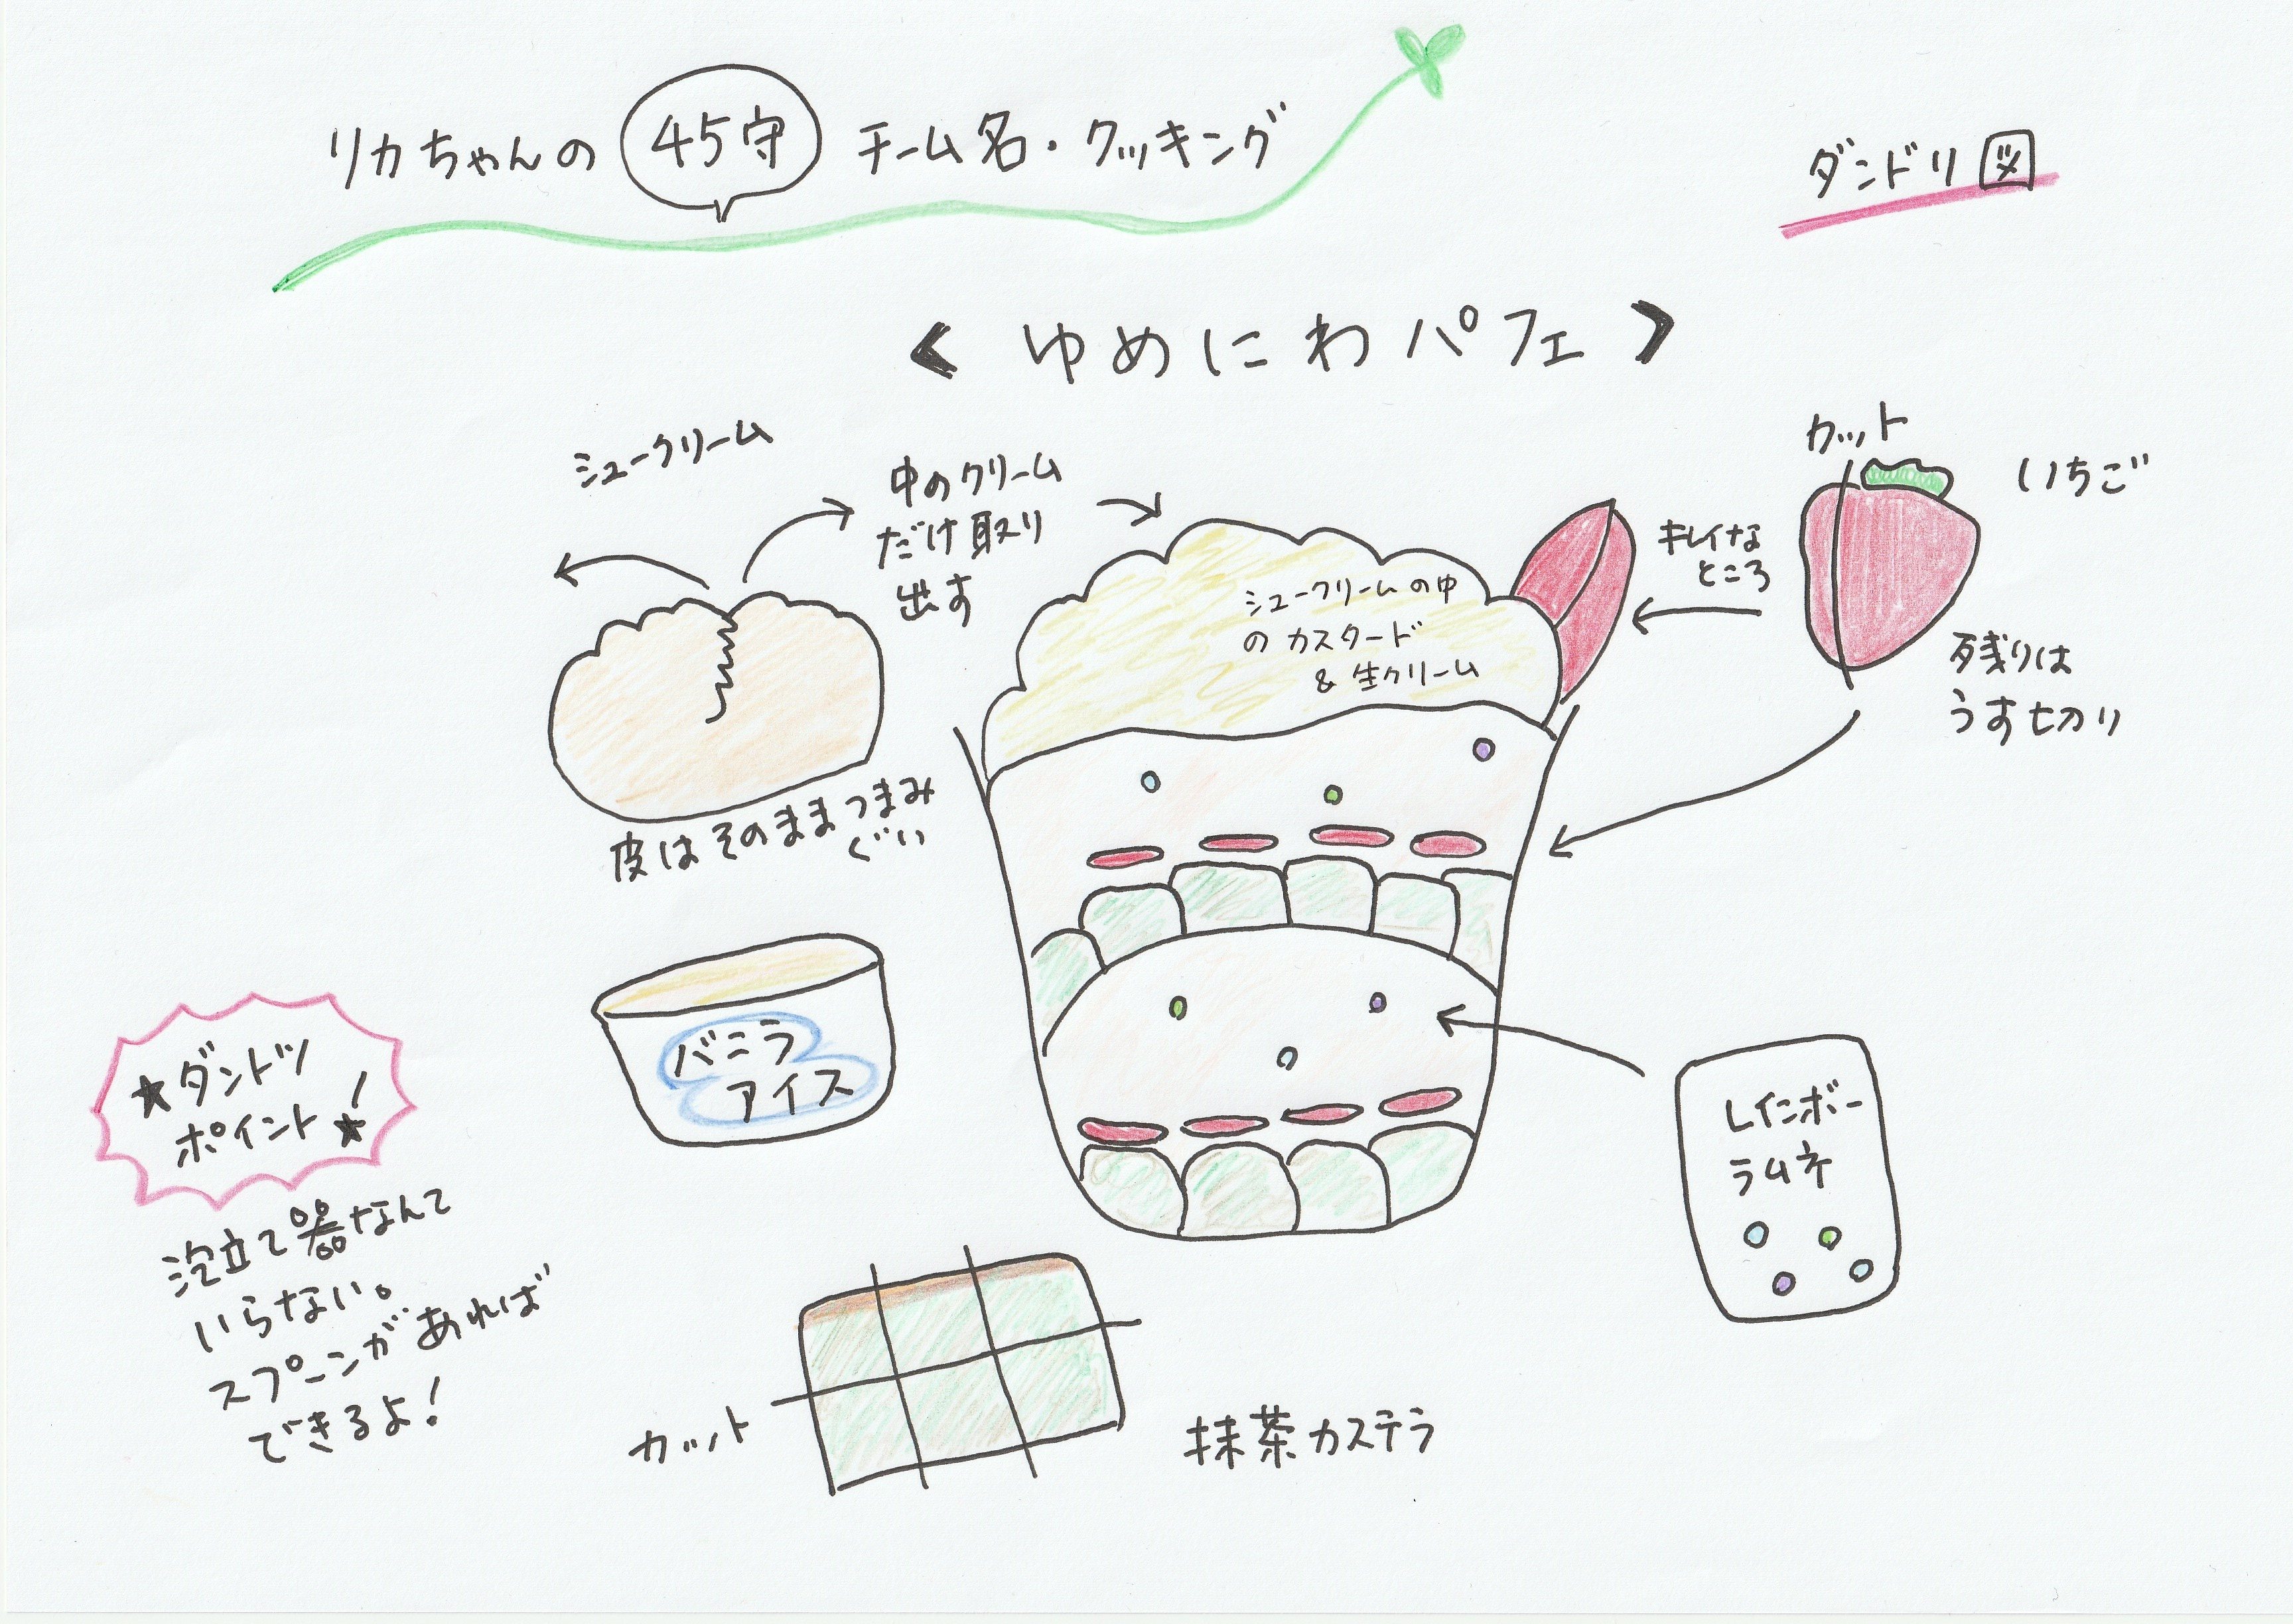 リカちゃんの 45守 チーム名・クッキング
ダンドリ図
< ゆめにわパフェ >
シュークリーム
中のクリーム
だけ取り
出す
皮はそのままつまみ
ぐい
シュークリームの中
のカスタード
& 生クリーム
カット
いちご
キレイな
ところ
残りは
うす切り
バニラ
アイス
★ダントツ
ポイント★!
泡立て器なんて
いらない。
スプーンがあれば
できるよ!
レインボー
ラムネ
カット
抹茶カステラ